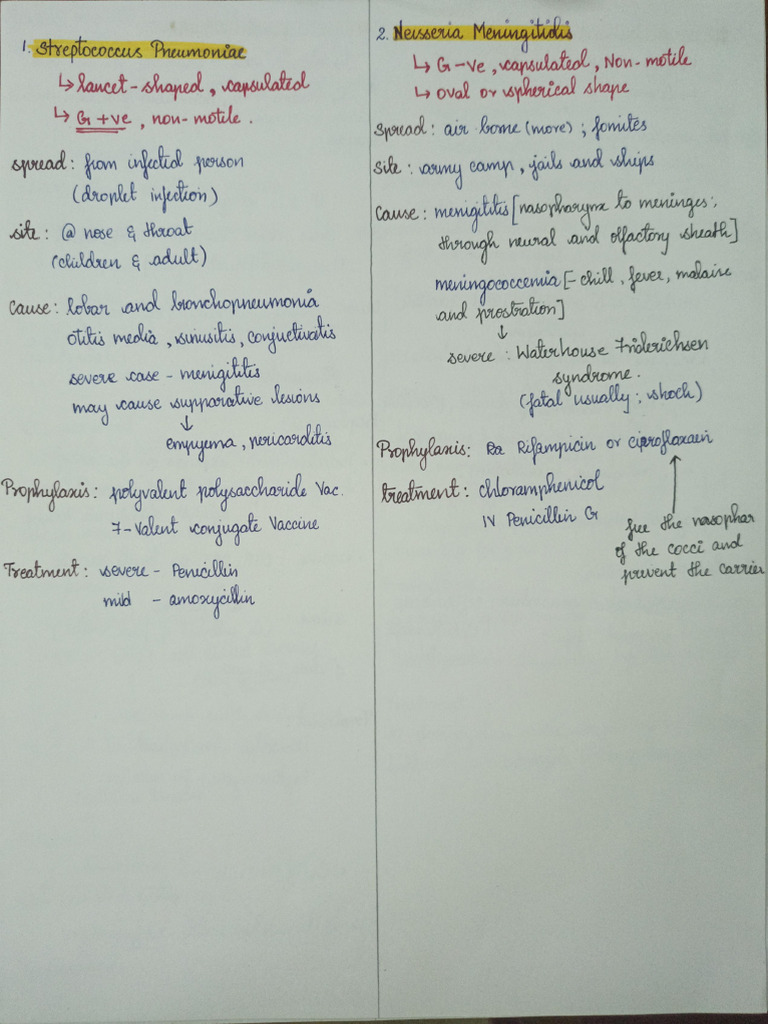 1. Streptococcus Pneumoniae
↳ lancet-shaped, capsulated
↳ G+ve, non-motile.
spread: from infected person
(droplet infection)
site: @ nose & throat
(children & adult)
Cause: lobar and bronchopneumonia
otitis media, sinusitis, conjuctivatis
severe case - menigititis
may cause supparative lesions
↓
empyema, pericarditis
Prophylaxis: polyvalent polysaccharide Vac.
7-Valent conjugate Vaccine
Treatment: severe - Penicillin
mild - amoxycillin
2. Neisseria Meningitidis
↳ G-ve, capsulated, Non-motile
↳ oval or spherical shape
Spread: air borne (more); fomites
Site: army camp, jails and ships
Cause: menigititis [nasopharynx to meninges;
through neural and olfactory sheath]
meningococcemia [-chill, fever, malaise
and prostration]
↓
severe: Waterhouse Friderichsen
syndrome.
(fatal usually; shock)
Prophylaxis: Rifampicin or ciprofloxacin
treatment: chloramphenicol
IV Penicillin G
free the nasophar
of the cocci and
prevent the carrier